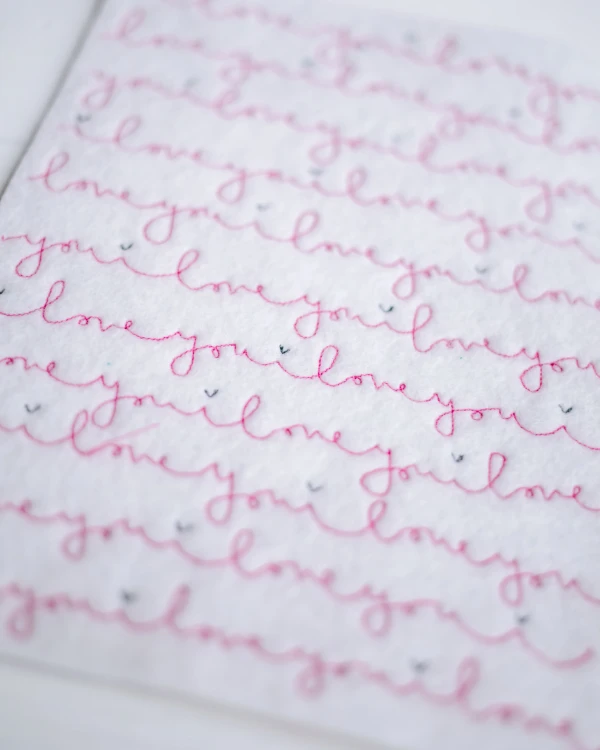 love you i love you
love you i love you i
you i love you i love you
i love you i love you i
love you i love you i love
you i love you i love you
i love you i love you i
ove you i love you i love
i love you i love you
ve you i love you i
you i love you i love